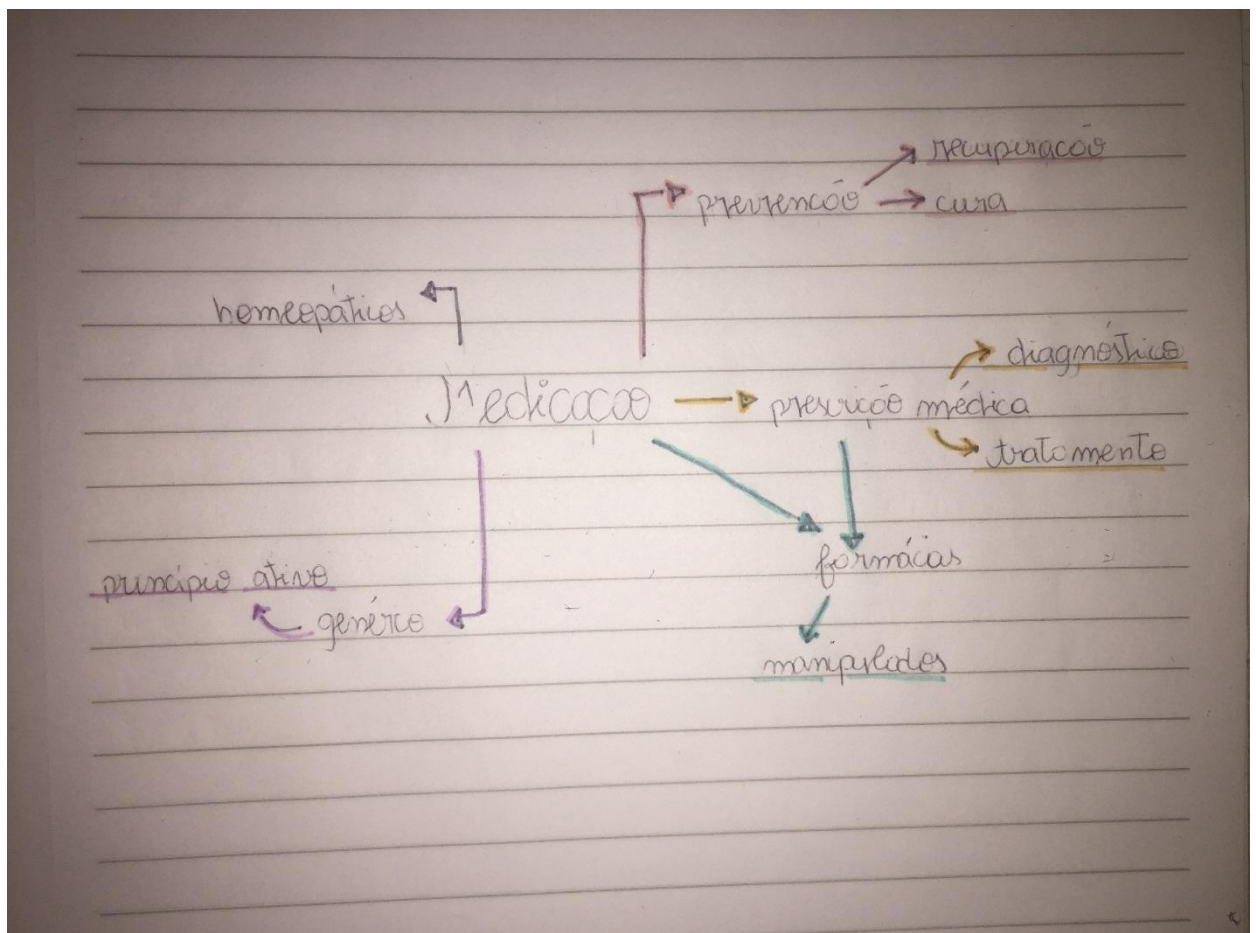 recuperação
prevenção
cura
homeopáticos
diagnóstico
Medicação
prescrição médica
tratamento
farmácias
princípio ativo
genérico
manipulados